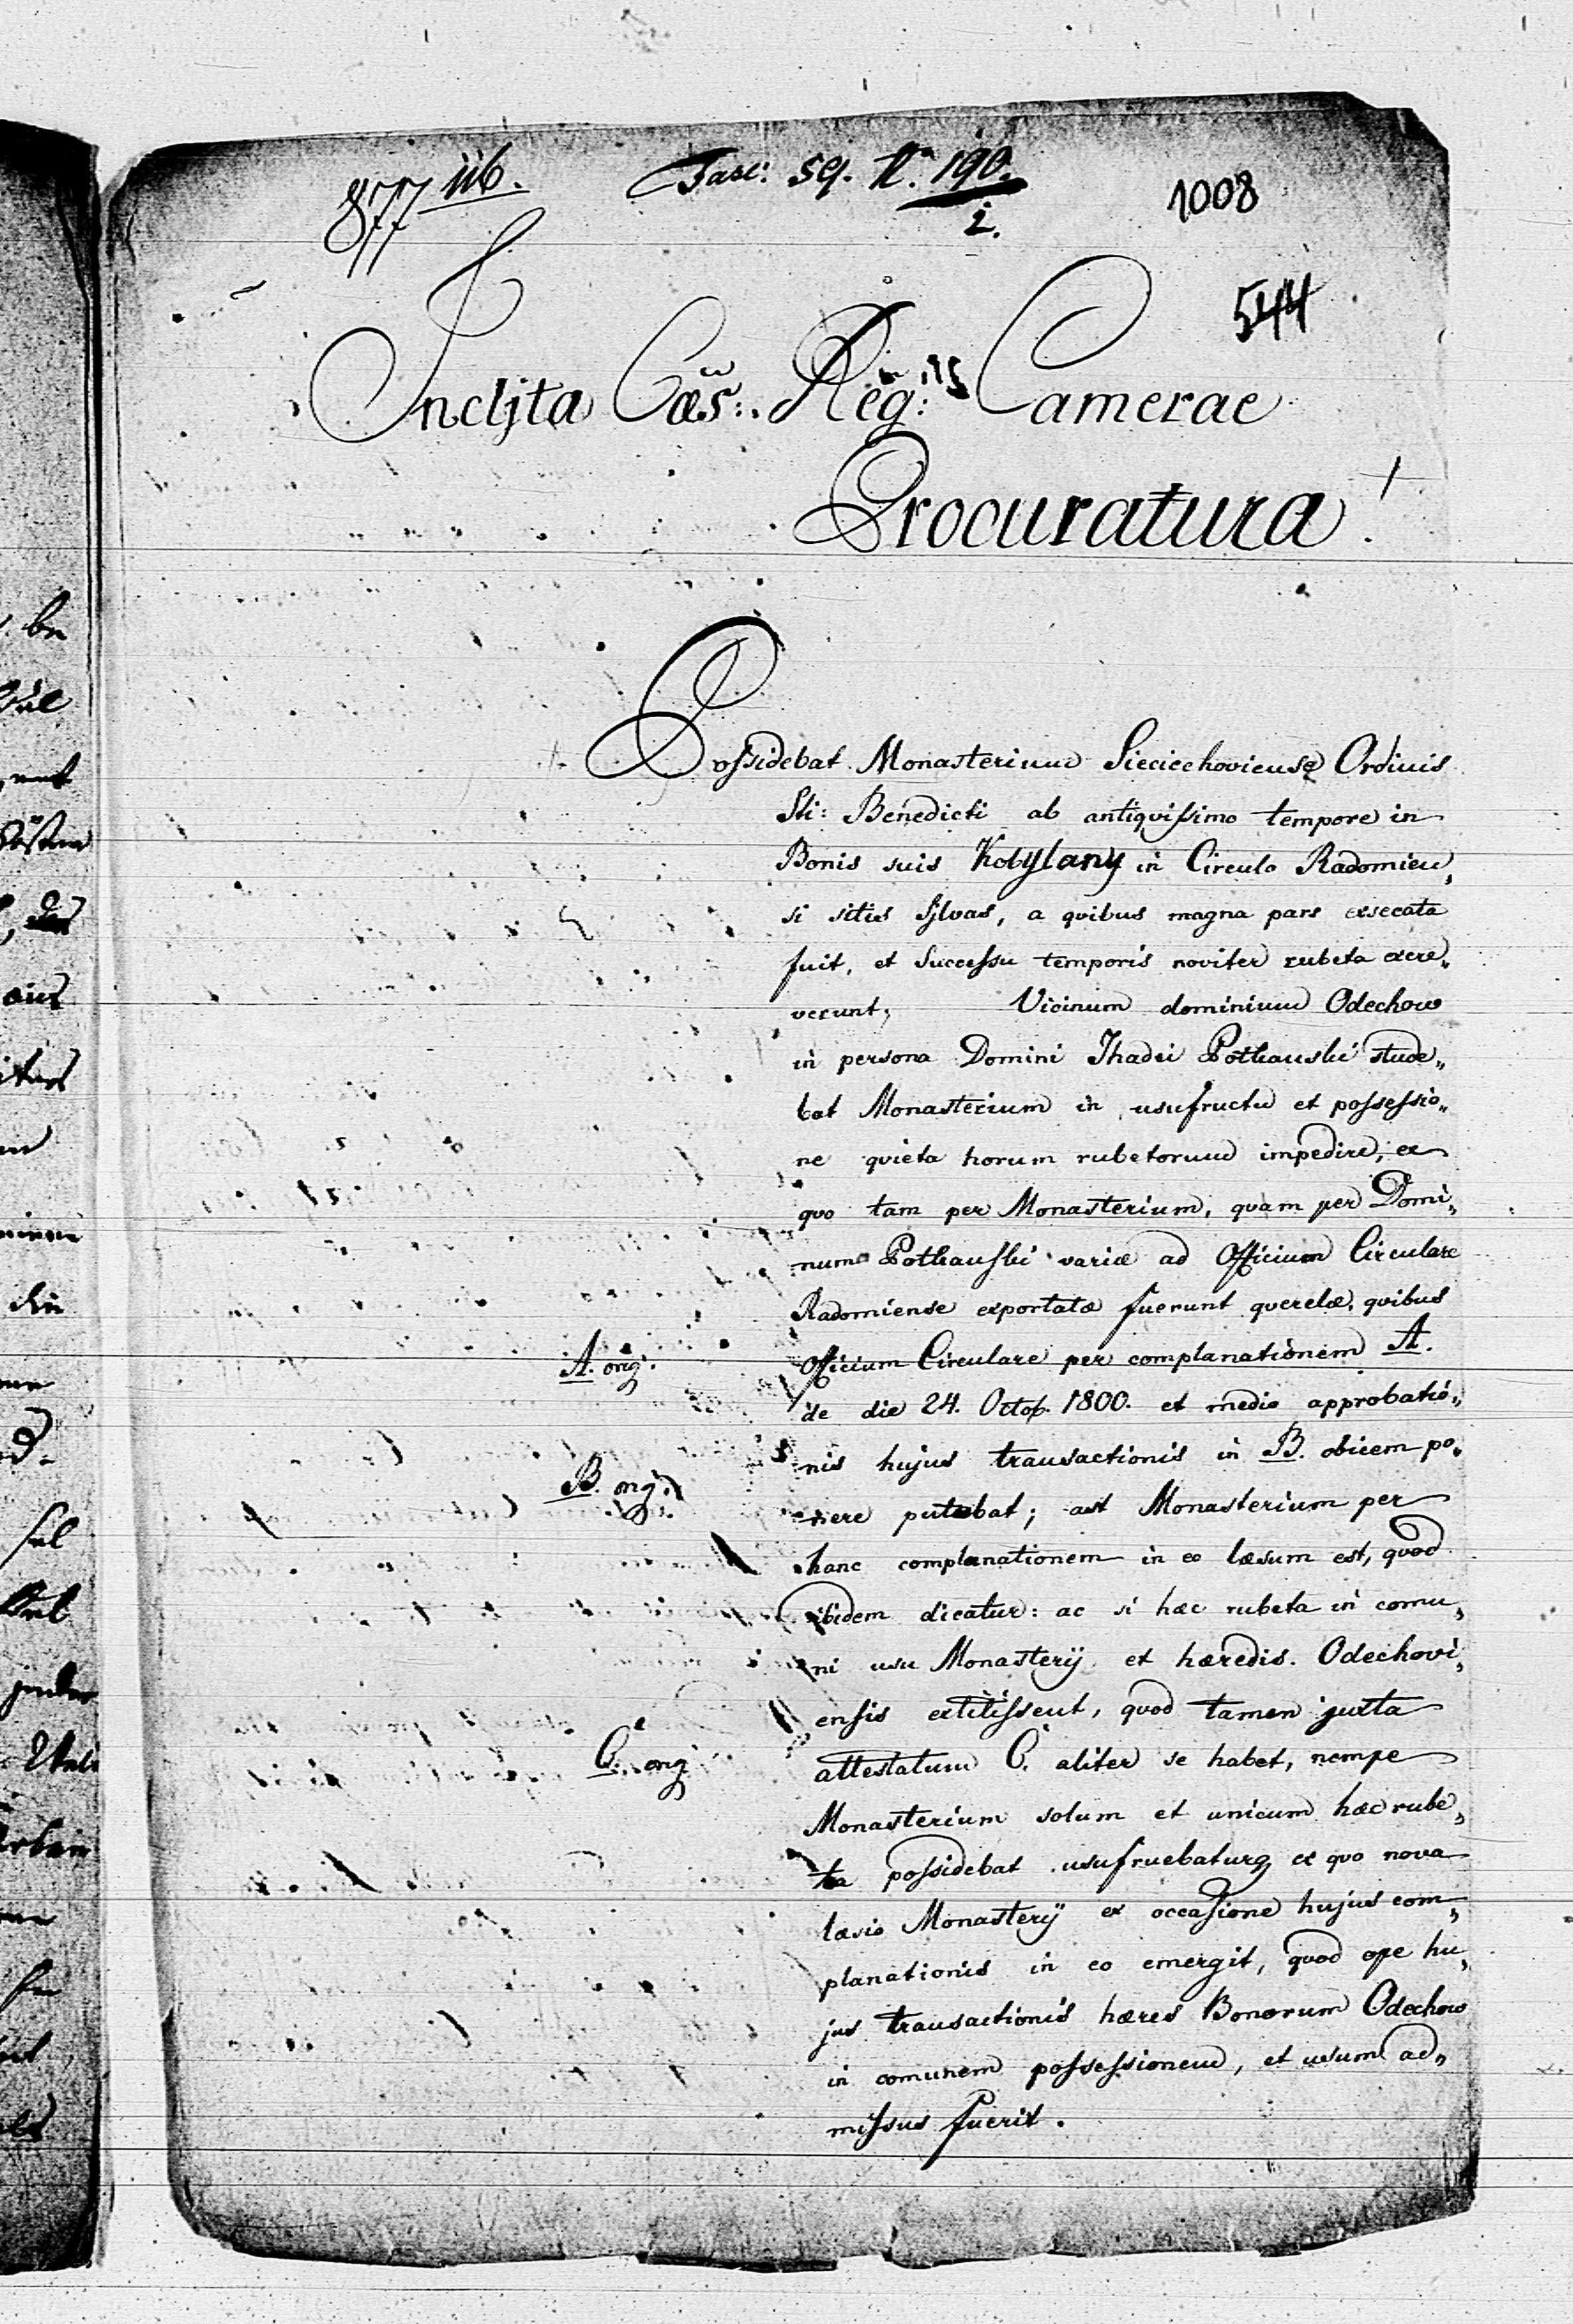 877 116. Fasc: 59. N. 190. 1008
2.
544
Inclyta Cæs: Reg: Camerae
Procuratura!
Possidebat Monasterium Sieciechoviense Ordinis
Sti: Benedicti ab antiquissimo tempore in
Bonis suis Kobylany in Circulo Radomien„
si sitis sylvas, a quibus magna pars exsecata
fuit, et successu temporis noviter rubeta excre„
verunt; Vicinum dominium Odechow
in persona Domini Thadei Potkanski stude„
bat Monasterium in usufructu et possessio„
ne quieta horum rubetorum impedire, ex
quo tam per Monasterium, quam per Domi„
num Potkanski variæ ad Officium Circulare
Radomiense exportatæ fuerunt querelæ, quibus
A. orig: Officium Circulare per complanationem A.
de die 24. Octob. 1800. et medio approbatio„
nis hujus transactionis in B. obicem po„
B. orig: nere putabat; ast Monasterium per
hanc complanationem in eo læsum est, quod
ibidem dicatur: ac si hæc rubeta in comu„
ni usu Monasterij et hæredis Odechovi„
ensis extitissent, quod tamen juxta
C. orig attestatum C. aliter se habet, nempe
Monasterium solum et unicum hæc rube„
ta possidebat usufruebaturq ex quo nova
læsio Monasterij ex occasione hujus com„
planationis in eo emergit, quod ope hu„
jus transactionis hæres Bonorum Odechow
in comunem possessionem, et usum ad„
missus fuerit.